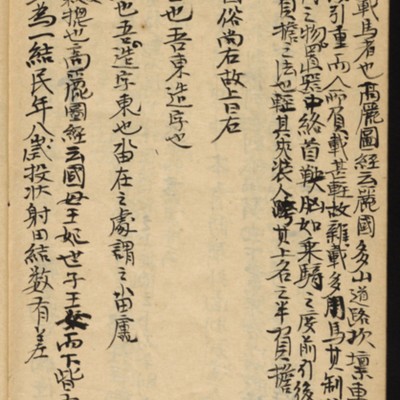 載馬者也高麗圖經云麗國多山道路坎壈車
引重而人所負載甚輕故雜載多用馬其制
之物置器中絡首鞅胸如乘騎之度前引後
負擔之法也輕其夾裝人其上名之半負擔
國俗尚右故上曰右
也吾東造字也
也吾造字東也畓在之處謂之畓庫
總也高麗圖經云國母王妃世子王女而下皆
為一結民年八歲投狀射田結数有差